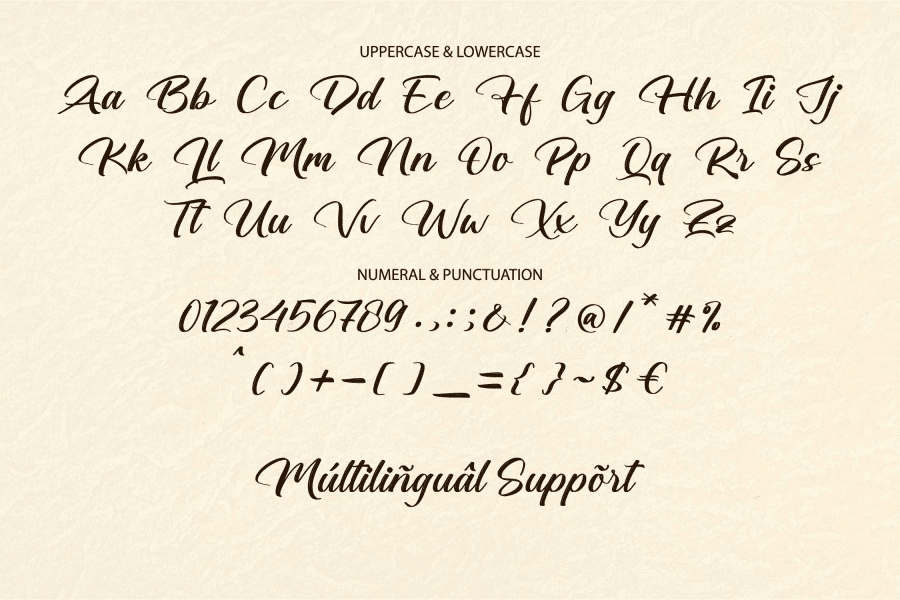 UPPERCASE & LOWERCASE
Aa Bb Cc Dd Ee Ff Gg Hh Ii Jj
Kk Ll Mm Nn Oo Pp Qq Rr Ss
Tt Uu Vv Ww Xx Yy Zz
NUMERAL & PUNCTUATION
0123456789.,:;&!?@/*#%
^()+-[]_={}~$€
Múltiliñguâl Suppõrt